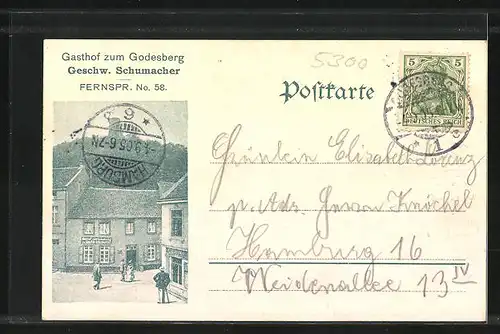 Gasthof zum Godesberg
Geschw. Schumacher
FERNSPR. No. 58.
5300
Postkarte
5 5
DEUTSCHES REICH
1
* 6 *
4.9.05.6-7N
HAMBURG
Fräulein Elisabeth Lorenz
p. Adr. Knöchel
Hamburg 16
Weidenallee 13 IV